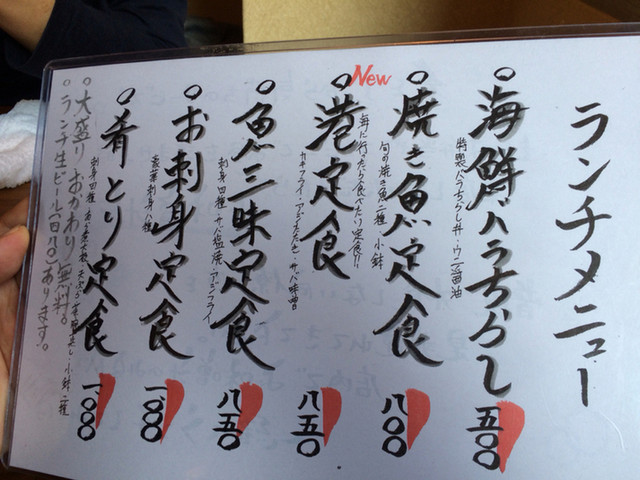 ランチメニュー
○海鮮バラちらし 五〇〇
特製バラちらし丼・ウニ醤油
○焼き魚定食 八〇〇
旬の焼き魚二種 小鉢
New
○港定食 八五〇
海に行ったら食べたい定食!!
カキフライ・アジたたき・サバ味噌
○魚三昧定食 八五〇
刺身四種・サバ塩焼・アジフライ
○お刺身定食 一、〇〇〇
豪華刺身八種
○肴とり定食 一、〇〇〇
刺身四種 小鉢二種
○大盛りおかわり無料。
○ランチ生ビール(一八〇)あります。